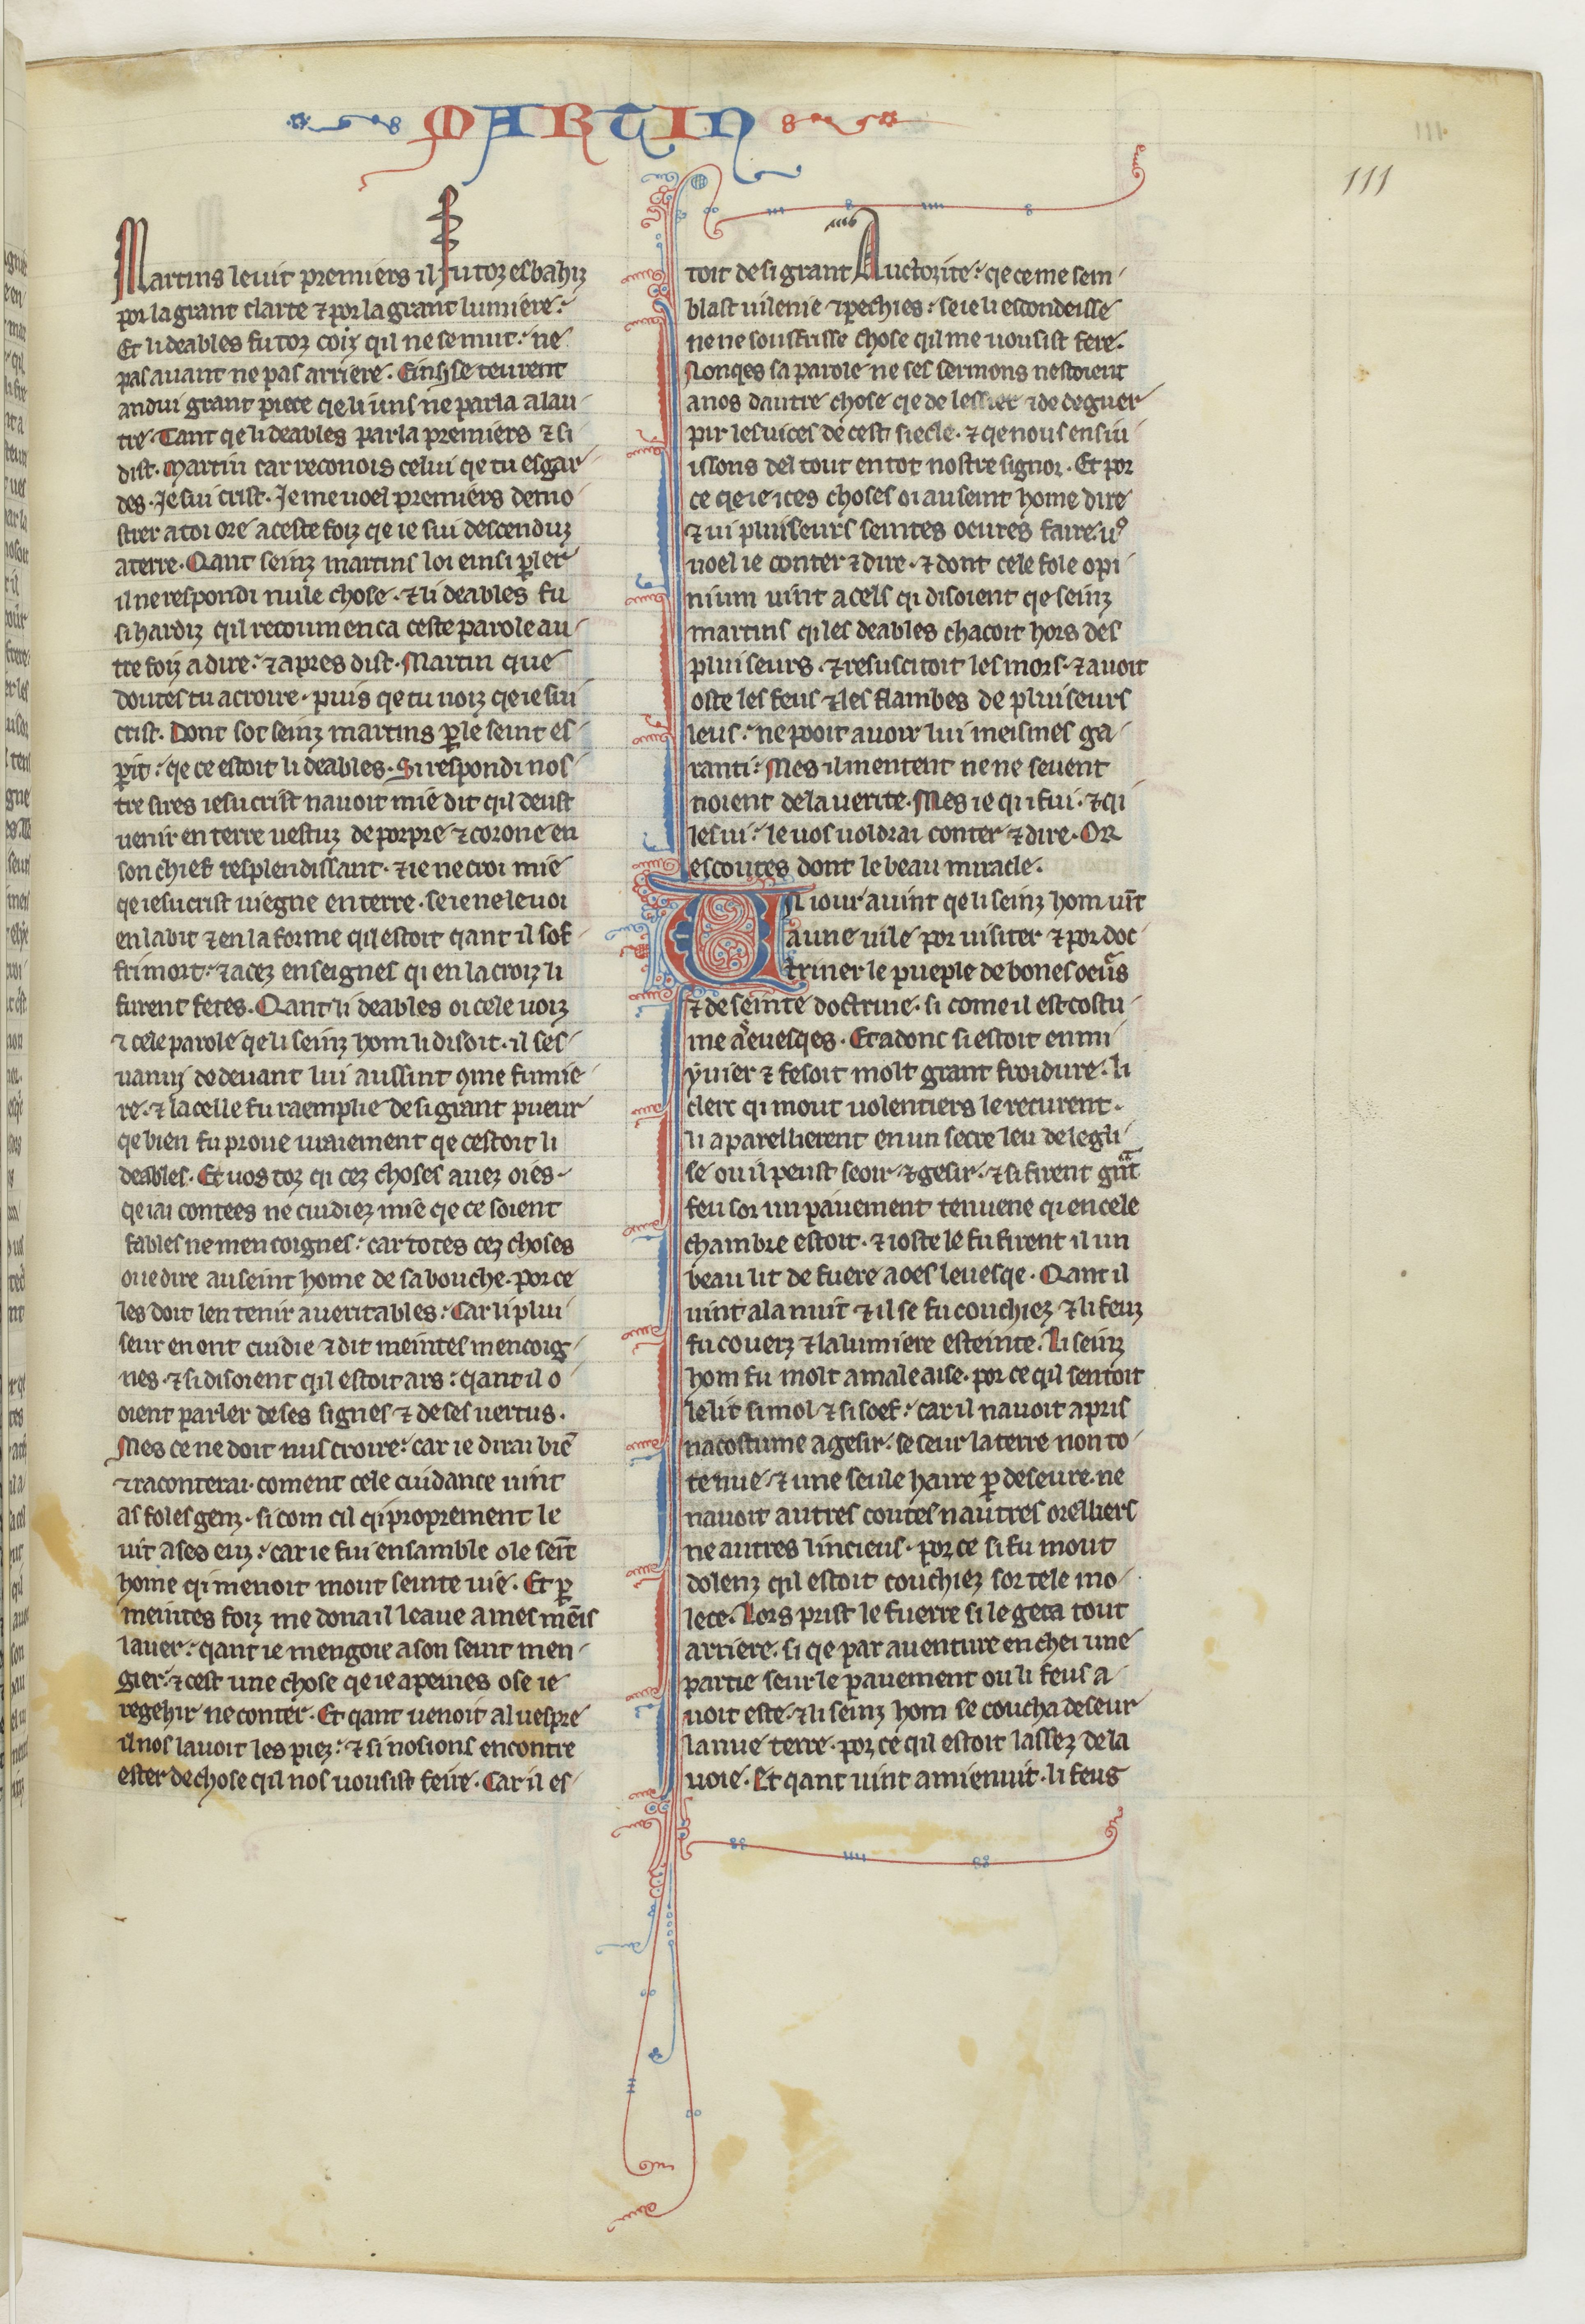 MARTIN
111
111
Martins le vit premiers il fu toz esbahiz
por la grant clarte ⁊ por la grant lumiere.
Et li deables fu toz coiz qil ne se mut. ne
pas auant ne pas arriere. Einsi se teurent
andui grant piece qe li uns ne parla a lau
tre. Tant qe li deables parla premiers ⁊ si
dist. Martin car reconois celui qe tu esgar
des. Je sui crist. Je me uoel premiers demo
strer a toi ore a ceste foiz qe ie sui descenduz
a terre. Qant seinz martins loi einsi ꝑler
il ne respondi nule chose. ⁊ li deables fu
si hardiz qil recoumenca ceste parole au
tre foiz a dire. ⁊ apres dist. Martin que
doutes tu a croire. puis qe tu uoiz qe ie sui
crist. Dont sot seinz martins ꝑ le seint es
perit. qe ce estoit li deables. Si respondi nos
tre sires iesucrist nauoit mie dit qil deust
uenir en terre uestuz de porpre ⁊ corone en
son chief resplendissant. ⁊ ie ne croi mie
qe iesucrist uiegne en terre. se ie ne le uoi
en labit ⁊ en la forme qil estoit qant il sof
fri mort. ⁊ a cez enseignes qi en la croiz li
furent fetes. Qant li deables oi cele uoiz
⁊ cele parole qe li seinz hom li disoit. il ses
uanuj de deuant lui aussint ꝯme fumie
re. ⁊ la celle fu raemplie de si grant pueur
qe bien fu proue uraiement qe cestoit li
deables. Et uos toz qi cez choses auez oies.
qe iai contees ne cuidiez mie qe ce soient
fables ne mencoignes. car totes cez choses
oue dire au seint home de sa bouche. por ce
les doit len tenir a ueritables. Car li plui
seur en ont cuidie ⁊ dit meintes mencoig
nes. ⁊ si disoient qil estoit ars. qant il o
oient parler de ses signes ⁊ de ses uertus.
Mes ce ne doit nus croire. car ie dirai biē
⁊ raconterai. coment cele cuidance uint
as foles genz. si com cil qi proprement le
uit a ses euz. car ie fui ensamble o le seīt
home qi menoit mout seinte uie. Et ꝑ
meintes foiz me dona il leaue a mes meīs
lauer. qant ie mengoie a son seint men
gier. ⁊ cest une chose qe ie a peines ose ie
regehir ne conter. Et qant uenoit al uespre
il nos lauoit les piez. ⁊ si nosions encontre
ester de chose qil nos uousist feire. Car il es
toit de si grant Auctorite. qe ce me sem
blast uilenie ⁊ pechies. se ie li escondeisse
ne ne sousfrisse chose qil me uousist fere.
Nonqes sa parole ne ses sermons nestoient
a nos dautre chose qe de lessier ⁊ de deguer
pir les uices de cest siecle. ⁊ qe nous ensiu
issons del tout en tot nostre signor. Et por
ce qe ie ices choses oi au seint home dire
⁊ ui pluiseurs seintes oeures faire. uꝰ
uoel ie conter ⁊ dire. ⁊ dont cele fole opi
nium uint a cels qi disoient qe seinz
martins qi les deables chacoit hors des
pluiseurs. ⁊ resuscitoit les mors. ⁊ auoit
oste les feus ⁊ les flambes de pluiseurs
leus. ne pooit auoir lui meismes ga
ranti. Mes il mentent ne ne seuent
noient de la uerite. Mes ie qi fui. ⁊ qi
les ui. le uos uoldrai conter ⁊ dire. OR
escoutes dont le beau miracle.
UN iour auint qe li seinz hom uīt
a une uile por uisiter ⁊ por doc
triner le pueple de bones oeuꝛͣs
⁊ de seinte doctrine. si come il est costu
me a euesqes. Et adonc si estoit en mi
yuier ⁊ fesoit molt grant froidure. li
clerc qi mout uolentiers le recurent.
li aparellierent en un secre leu de legli
se ou il peust seoir. ⁊ gesir. ⁊ si firent gͣnt
feu sor un pauement tenuene qi en cele
chambre estoit. ⁊ ioste le fu firent il un
beau lit de fuere a oes leuesqe. Qant il
uint a la nuit ⁊ il se fu couchiez ⁊ li feuz
fu couerz ⁊ la lumiere esteinte. Li seinz
hom fu molt a male aise. por ce qil sentoit
le lit si mol ⁊ si soef. car il nauoit apris
nacostume a gesir. se seur la terre non to
te nue. ⁊ une seule haire ꝑ deseure. ne
nauoit autres coutes nautres orelliers
ne autres linceus. por ce si fu mout
dolenz qil estoit couchiez sor tele mo
lece. Lors prist le fuerre si le geta tout
arriere. si qe par auenture en chei une
partie seur le pauement ou li feus a
uoit este. ⁊ li seinz hom se coucha deseur
la nue terre. por ce qil estoit lassez de la
uoie. Et qant uint a mienuit. li feus